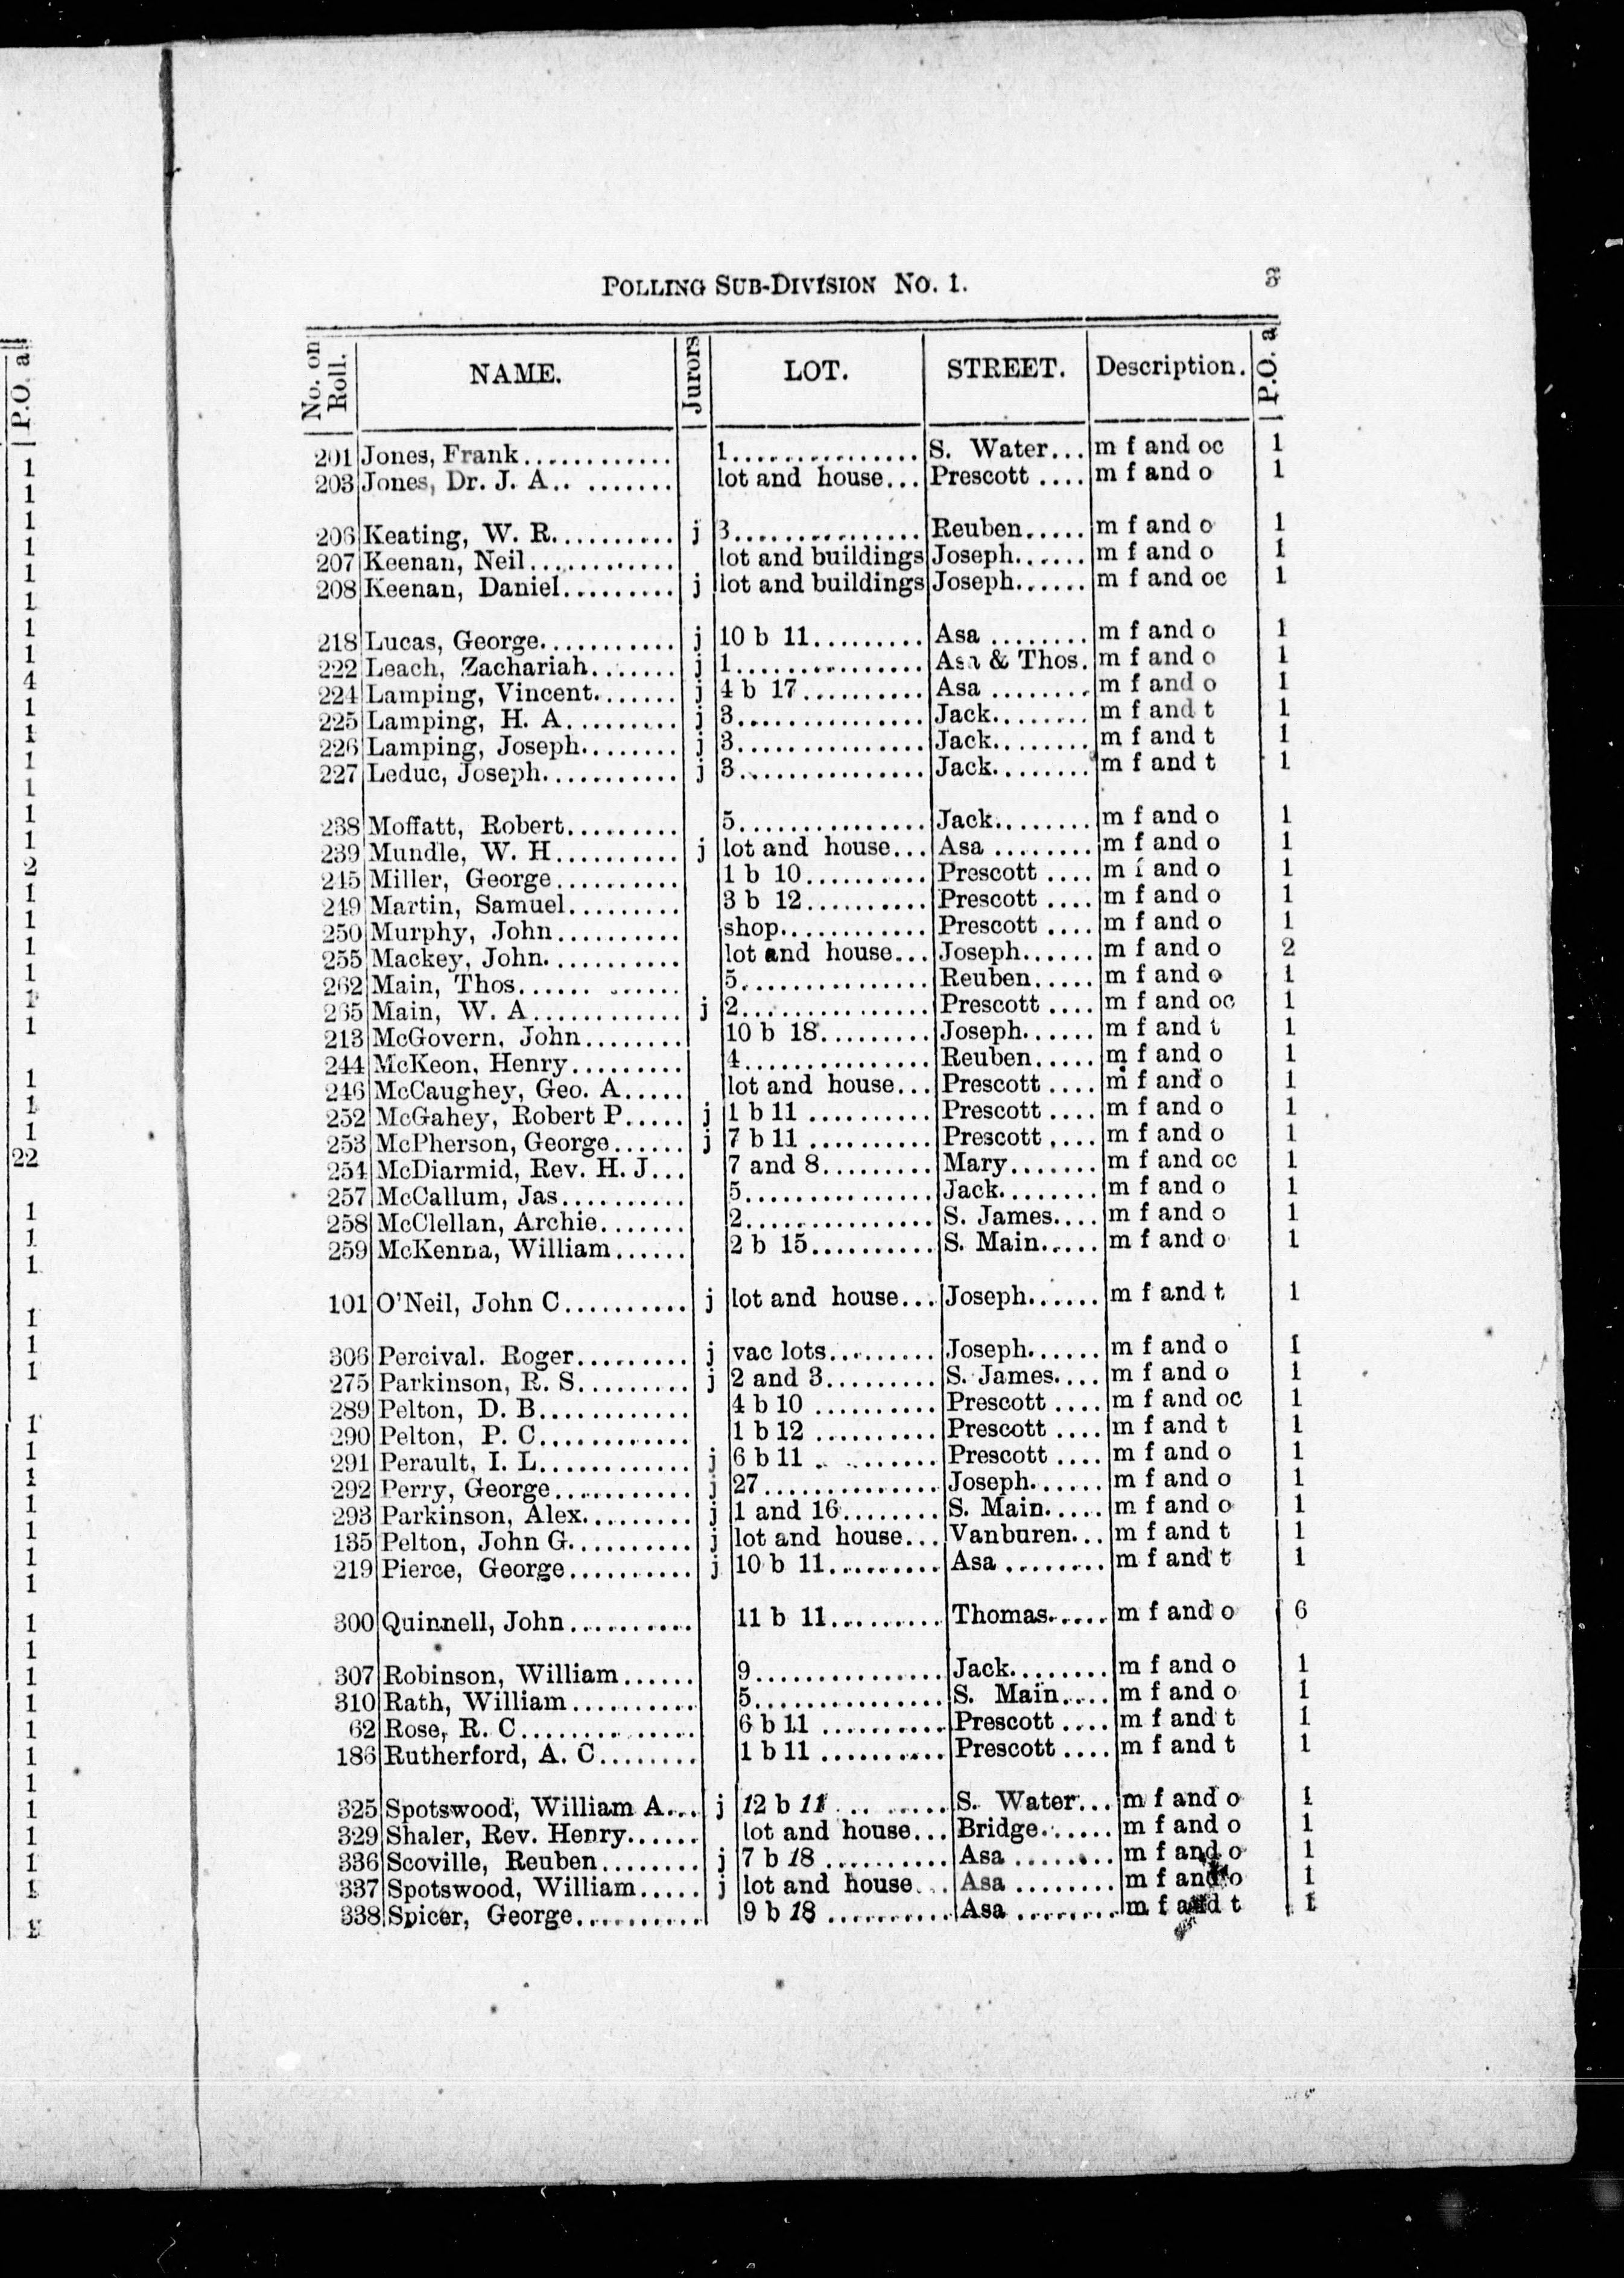 POLLING SUB-DIVISION NO. 1. 3
No. on Roll. NAME. Jurors LOT. STREET. Description. P.O. a
201 Jones, Frank............ 1............... S. Water... m f and oc 1
203 Jones, Dr. J. A.. ....... lot and house... Prescott .... m f and o 1
206 Keating, W. R.......... j 3............... Reuben..... m f and o 1
207 Keenan, Neil............ lot and buildings Joseph...... m f and o 1
208 Keenan, Daniel......... j lot and buildings Joseph...... m f and oc 1
218 Lucas, George........... j 10 b 11......... Asa ........ m f and o 1
222 Leach, Zachariah....... j 1............... Asa & Thos. m f and o 1
224 Lamping, Vincent....... j 4 b 17.......... Asa ........ m f and o 1
225 Lamping, H. A......... j 3............... Jack........ m f and t 1
226 Lamping, Joseph........ j 3............... Jack........ m f and t 1
227 Leduc, Joseph........... j 3............... Jack........ m f and t 1
238 Moffatt, Robert......... 5............... Jack........ m f and o 1
239 Mundle, W. H.......... j lot and house... Asa ........ m f and o 1
245 Miller, George.......... 1 b 10.......... Prescott .... m f and o 1
249 Martin, Samuel......... 3 b 12.......... Prescott .... m f and o 1
250 Murphy, John.......... shop............ Prescott .... m f and o 1
255 Mackey, John........... lot and house... Joseph...... m f and o 2
262 Main, Thos...... ...... 5............... Reuben..... m f and o 1
265 Main, W. A............ j 2............... Prescott .... m f and oc 1
213 McGovern, John........ 10 b 18......... Joseph...... m f and t 1
244 McKeon, Henry......... 4............... Reuben..... m f and o 1
246 McCaughey, Geo. A..... lot and house... Prescott .... m f and o 1
252 McGahey, Robert P..... j 1 b 11 .......... Prescott .... m f and o 1
253 McPherson, George...... j 7 b 11 .......... Prescott .... m f and o 1
254 McDiarmid, Rev. H. J... 7 and 8......... Mary....... m f and oc 1
257 McCallum, Jas.......... 5............... Jack........ m f and o 1
258 McClellan, Archie....... 2............... S. James.... m f and o 1
259 McKenna, William...... 2 b 15.......... S. Main..... m f and o 1
101 O'Neil, John C.......... j lot and house... Joseph...... m f and t 1
306 Percival. Roger......... j vac lots......... Joseph...... m f and o 1
275 Parkinson, R. S......... j 2 and 3......... S. James.... m f and o 1
289 Pelton, D. B............ 4 b 10 .......... Prescott .... m f and oc 1
290 Pelton, P. C............ 1 b 12 .......... Prescott .... m f and t 1
291 Perault, I. L............ j 6 b 11 . ........ Prescott .... m f and o 1
292 Perry, George........... j 27............... Joseph...... m f and o 1
293 Parkinson, Alex......... j 1 and 16........ S. Main..... m f and o 1
135 Pelton, John G.......... j lot and house... Vanburen... m f and t 1
219 Pierce, George.......... j 10 b 11......... Asa ........ m f and t 1
300 Quinnell, John.......... 11 b 11......... Thomas..... m f and o 6
307 Robinson, William...... 9............... Jack........ m f and o 1
310 Rath, William.......... 5............... S. Main.... m f and o 1
62 Rose, R. C.............. 6 b 11 .......... Prescott .... m f and t 1
186 Rutherford, A. C........ 1 b 11 .......... Prescott .... m f and t 1
325 Spotswood, William A... j 12 b 11 .. ...... S. Water... m f and o 1
329 Shaler, Rev. Henry...... lot and house... Bridge...... m f and o 1
336 Scoville, Reuben........ j 7 b 18 .......... Asa ........ m f and o 1
337 Spotswood, William..... j lot and house... Asa ........ m f and o 1
338 Spicer, George.......... 9 b 18 .......... Asa ........ m f and t 1
P.O. a
1
1
1
1
1
1
1
1
4
1
1
1
1
1
1
2
1
1
1
1
1
1
1
1
1
22
1
1
1
1
1
1
1
1
1
1
1
1
1
1
1
1
1
1
1
1
1
1
1
1
1